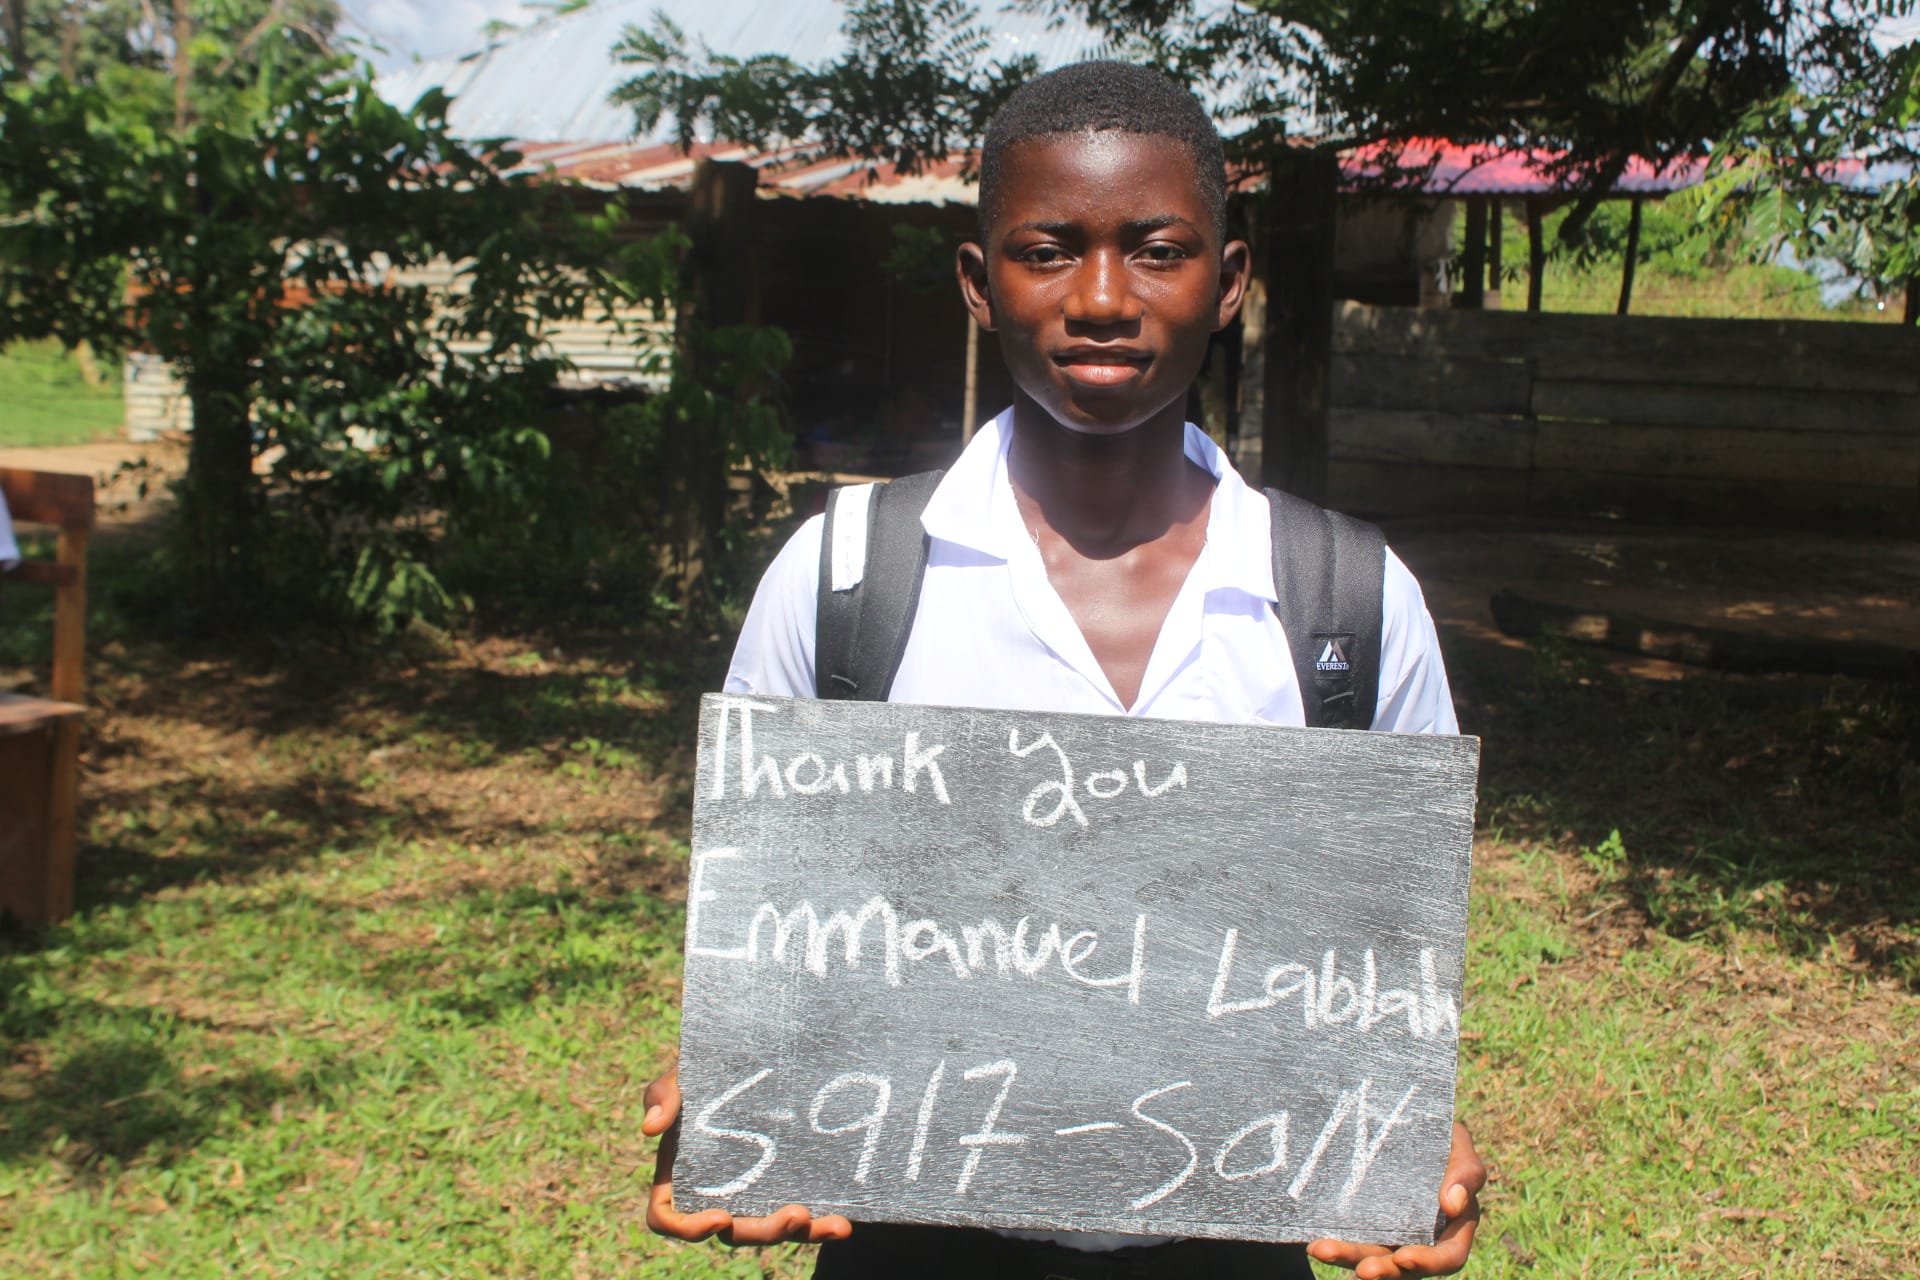 EVEREST
Thank You
Emmanuel Lablah
S-917-SON